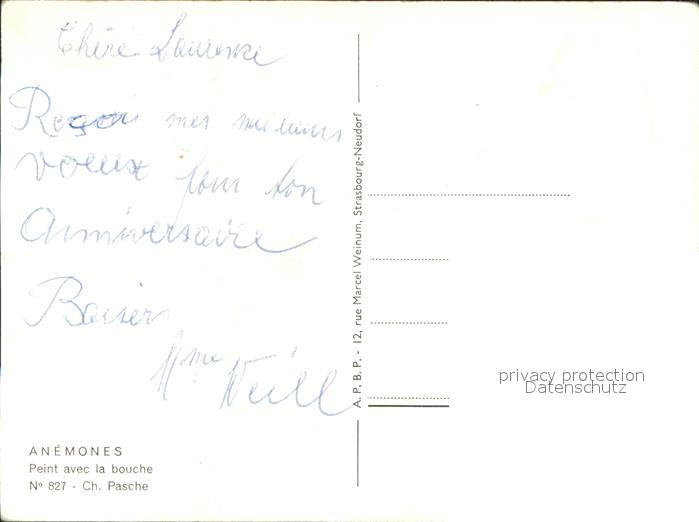 Chère Laurence
Reçois mes meilleurs
voeux pour ton
Anniversaire
Baisers
Mme Weill
ANÉMONES
Peint avec la bouche
Nº 827 - Ch. Pasche
A. P. B. P. - 12, rue Marcel Weinum, Strasbourg-Neudorf
privacy protection
Datenschutz